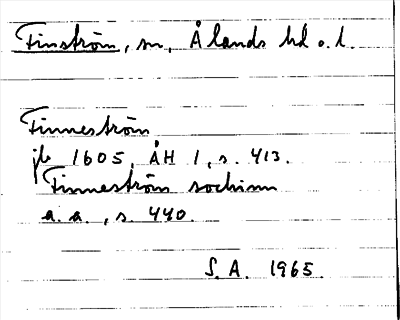 Finström, sn, Ålands hd o. l.
Finneström
jb 1605, ÅH 1, s. 413.
Finneström sochnn
a. a., s. 440.
S. A. 1965